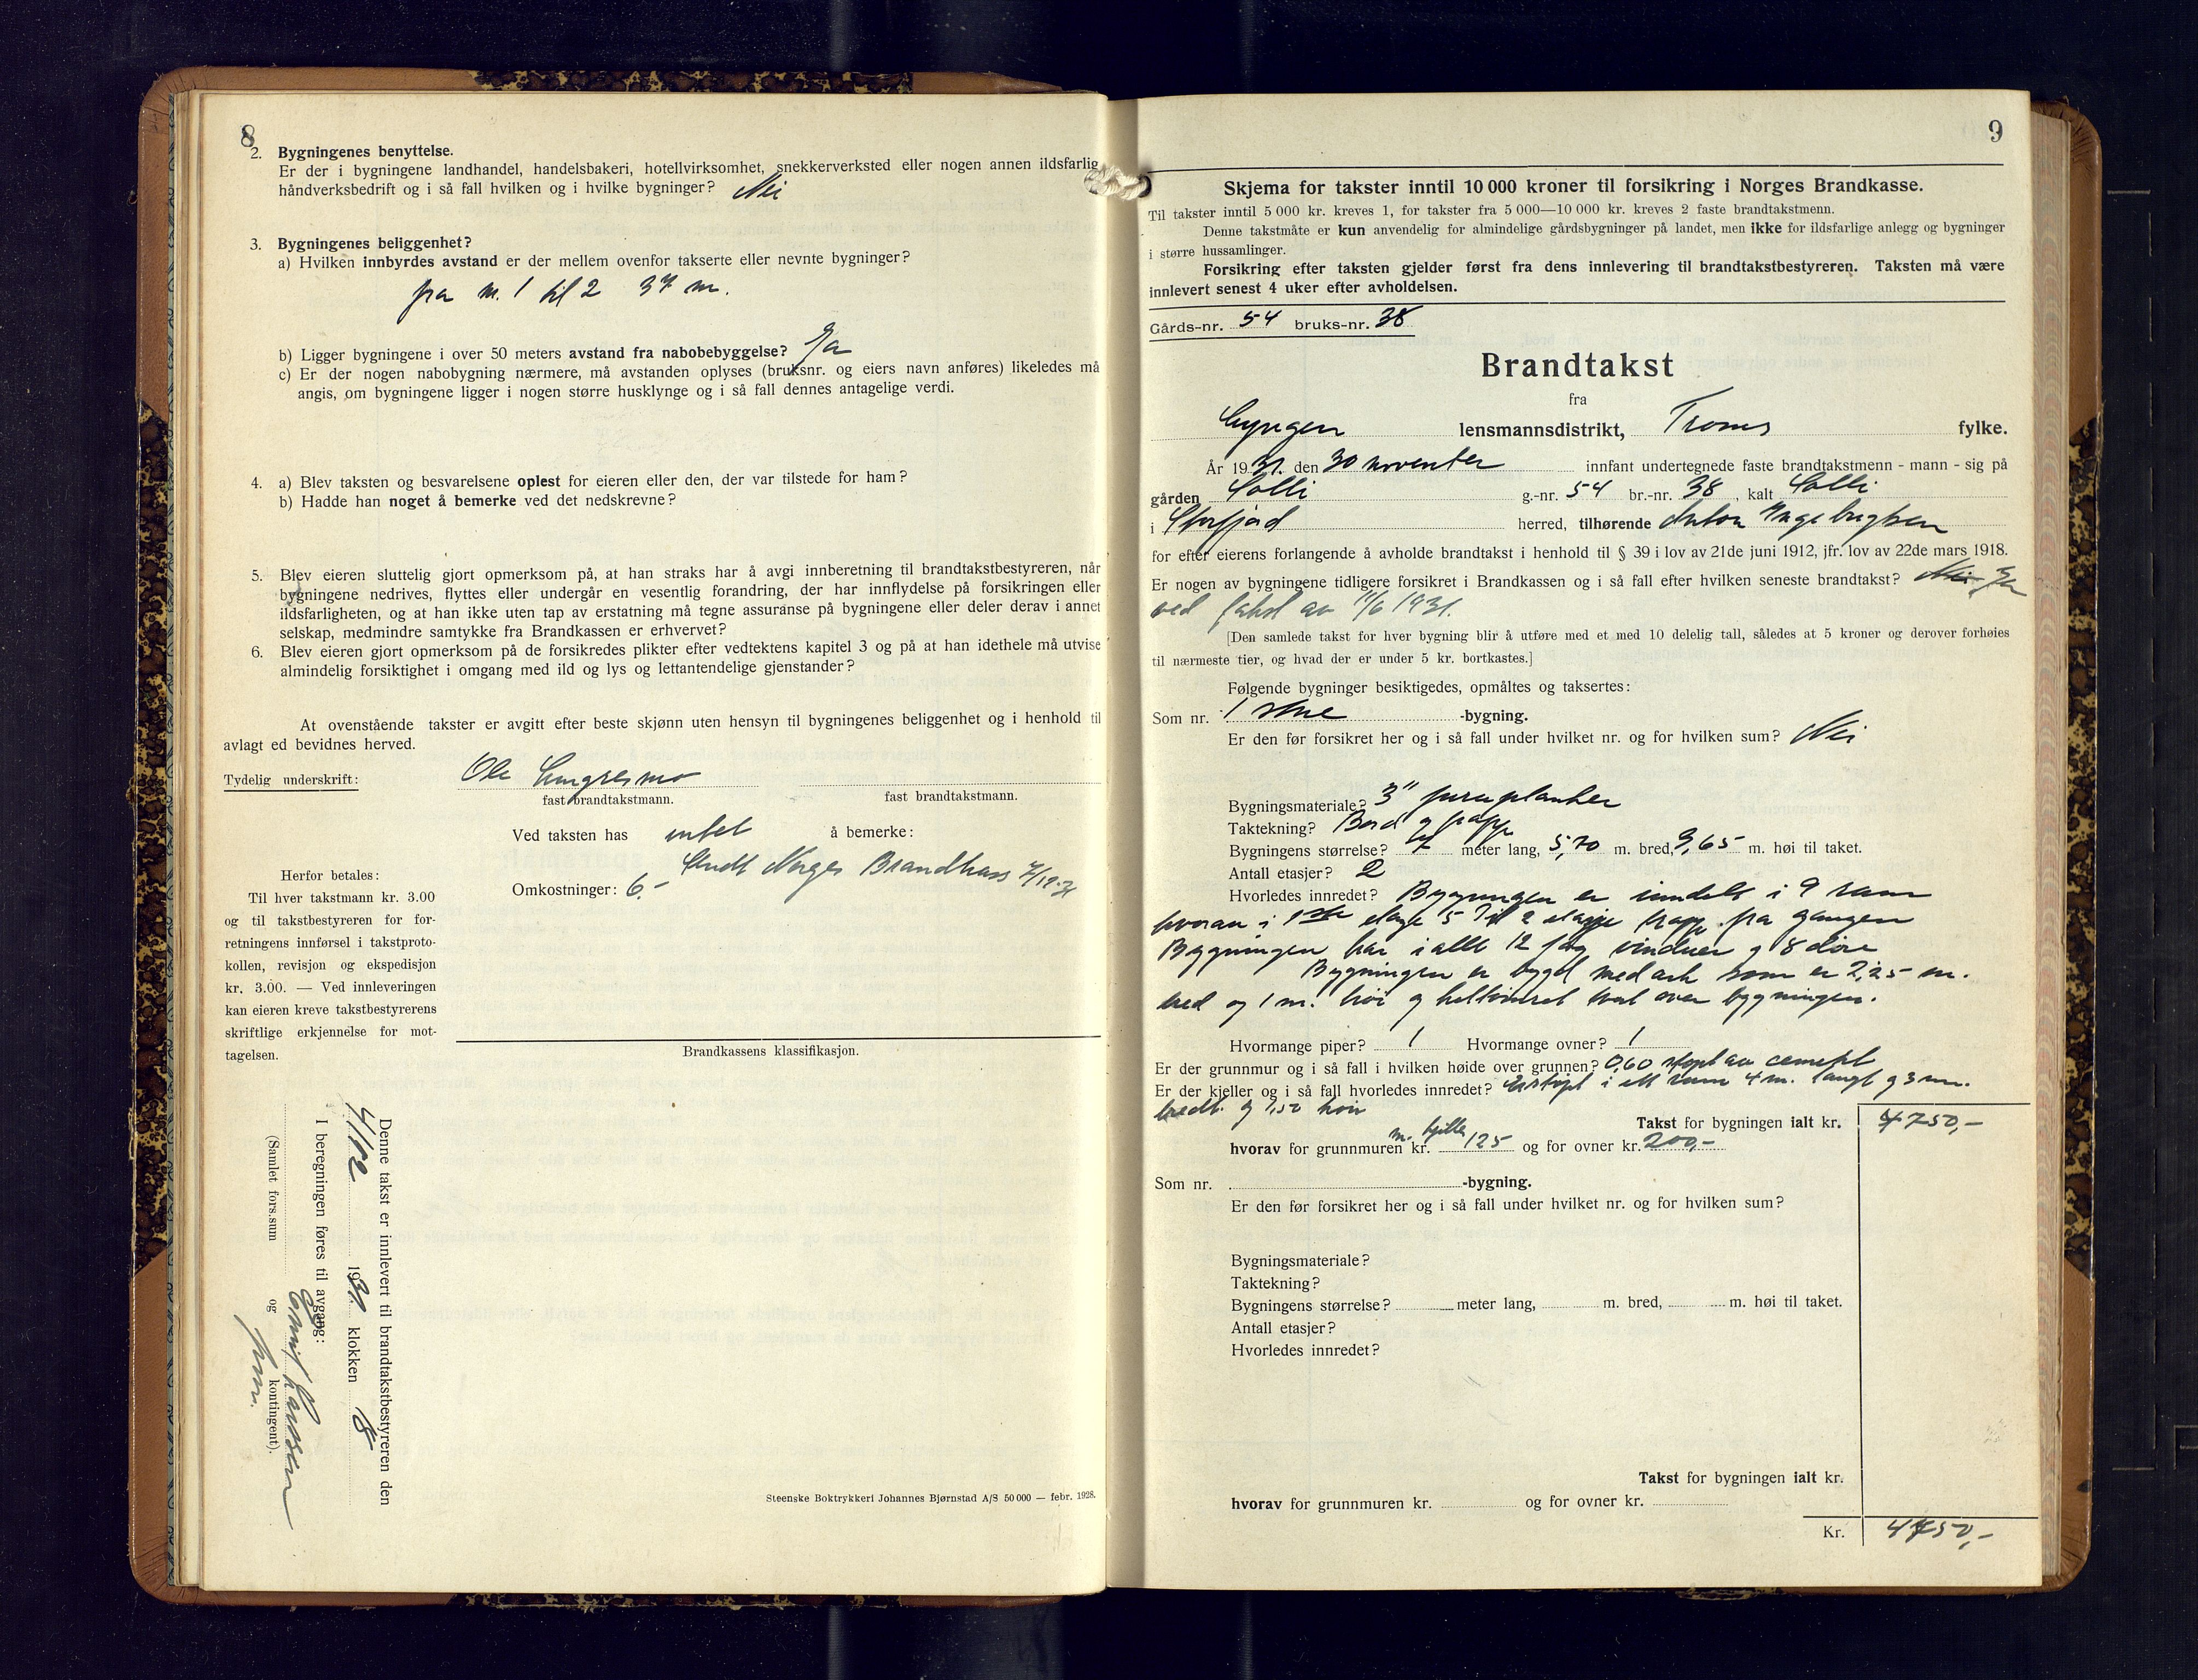 8
2. Bygningenes benyttelse.
Er der i bygningene landhandel, handelsbakeri, hotellvirksomhet, snekkerverksted eller nogen annen ildsfarlig
håndverksbedrift og i så fall hvilken og i hvilke bygninger? Nei
3. Bygningenes beliggenhet?
a) Hvilken innbyrdes avstand er der mellem ovenfor takserte eller nevnte bygninger?
fra nr. 1 til 2 37 m.
b) Ligger bygningene i over 50 meters avstand fra nabobebyggelse? Ja
c) Er der nogen nabobygning nærmere, må avstanden oplyses (bruksnr. og eiers navn anføres) likeledes må
angis, om bygningene ligger i nogen større husklynge og i så fall dennes antagelige verdi.
4. a) Blev taksten og besvarelsene oplest for eieren eller den, der var tilstede for ham?
b) Hadde han noget å bemerke ved det nedskrevne?
5. Blev eieren sluttelig gjort opmerksom på, at han straks har å avgi innberetning til brandtakstbestyreren, når
bygningene nedrives, flyttes eller undergår en vesentlig forandring, der har innflydelse på forsikringen eller
ildsfarligheten, og at han ikke uten tap av erstatning må tegne assuranse på bygningene eller deler derav i annet
selskap, medmindre samtykke fra Brandkassen er erhvervet?
6. Blev eieren gjort opmerksom på de forsikredes plikter efter vedtektens kapitel 3 og på at han idethele må utvise
almindelig forsiktighet i omgang med ild og lys og lettantendelige gjenstander?
At ovenstående takster er avgitt efter beste skjønn uten hensyn til bygningenes beliggenhet og i henhold til
avlagt ed bevidnes herved.
Tydelig underskrift: Ole Lyngresmo
fast brandtakstmann. fast brandtakstmann.
Ved taksten has intet å bemerke:
Sendt Norges Brandkass 7/12-31
Omkostninger: 6.-
Herfor betales:
Til hver takstmann kr. 3.00
og til takstbestyreren for for-
retningens innførsel i takstproto-
kollen, revisjon og ekspedisjon
kr. 3.00. — Ved innleveringen
kan eieren kreve takstbestyrerens
skriftlige erkjennelse for mot-
tagelsen.
Brandkassens klassifikasjon.
Denne takst er innlevert til brandtakstbestyreren den
4/12 1931. klokken 18
I beregningen føres til avgang:
(Samlet fors.sum og kontingent).
Larssen
Steenske Boktrykkeri Johannes Bjørnstad A/S 50 000 — febr. 1928.
9
Skjema for takster inntil 10 000 kroner til forsikring i Norges Brandkasse.
Til takster inntil 5 000 kr. kreves 1, for takster fra 5 000—10 000 kr. kreves 2 faste brandtakstmenn.
Denne takstmåte er kun anvendelig for almindelige gårdsbygninger på landet, men ikke for ildsfarlige anlegg og bygninger
i større hussamlinger.
Forsikring efter taksten gjelder først fra dens innlevering til brandtakstbestyreren. Taksten må være
innlevert senest 4 uker efter avholdelsen.
Gårds-nr. 54 bruks-nr. 38
Brandtakst
fra
Lyngen lensmannsdistrikt, Troms fylke.
År 1931. den 30 november innfant undertegnede faste brandtakstmenn - mann - sig på
gården Solli g.-nr. 54 br.-nr. 38, kalt Solli
i Storfjord herred, tilhørende Anton Ingebrigtsen
for efter eierens forlangende å avholde brandtakst i henhold til § 39 i lov av 21de juni 1912, jfr. lov av 22de mars 1918.
Er nogen av bygningene tidligere forsikret i Brandkassen og i så fall efter hvilken seneste brandtakst? Nei Ja
ved takst av 11/6 1931.
[Den samlede takst for hver bygning blir å utføre med et med 10 delelig tall, således at 5 kroner og derover forhøies
til nærmeste tier, og hvad der er under 5 kr. bortkastes.]
Følgende bygninger besiktigedes, opmåltes og taksertes:
Som nr. 1 stue -bygning.
Er den før forsikret her og i så fall under hvilket nr. og for hvilken sum? Nei
Bygningsmateriale? 3" furuplanker
Taktekning? Bord og papp
Bygningens størrelse? 7 meter lang, 5,70 m. bred, 3,65 m. høi til taket.
Antall etasjer? 2
Hvorledes innredet? Bygningen er inndelt i 9 rum
hvorav i 1ste etage 5 Til 2 etagje trapp fra gangen
Bygningen har i allt 12 fag vinduer og 8 døre
Bygningen er bygd med ark som er 2,25 m.
bred og 1 m. høi og heltømret tverl over bygningen.
Hvormange piper? 1 Hvormange ovner? 1
Er der grunnmur og i så fall i hvilken høide over grunnen? 0,60 støpt av cement
Er der kjeller og i så fall hvorledes innredet? i ett rum 4 m. langt og 3 m.
bredt. og 1,50 høi
Takst for bygningen ialt kr. 4750,-
hvorav for grunnmuren m. kjeller kr. 125 og for ovner kr. 200,-
Som nr. -bygning.
Er den før forsikret her og i så fall under hvilket nr. og for hvilken sum?
Bygningsmateriale?
Taktekning?
Bygningens størrelse? meter lang, m. bred, m. høi til taket.
Antall etasjer?
Hvorledes innredet?
Takst for bygningen ialt kr.
hvorav for grunnmuren kr. og for ovner kr.
Kr. 4750,-